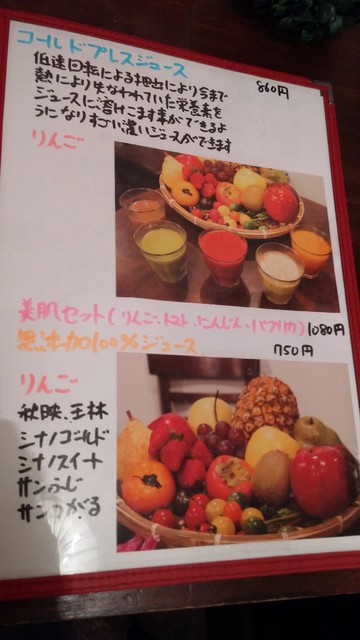 コールドプレスジュース 860円
低速回転による押出により今まで
熱により失なわれていた栄養素を
ジュースに溶けこます事ができるよ
うになりすごい濃いジュースができます
りんご
美肌セット(りんご、トマト、にんじん、パプリカ) 1080円
無添加100%ジュース 750円
りんご
秋映、王林
シナノゴールド
シナノスイート
サンふじ
サンつがる